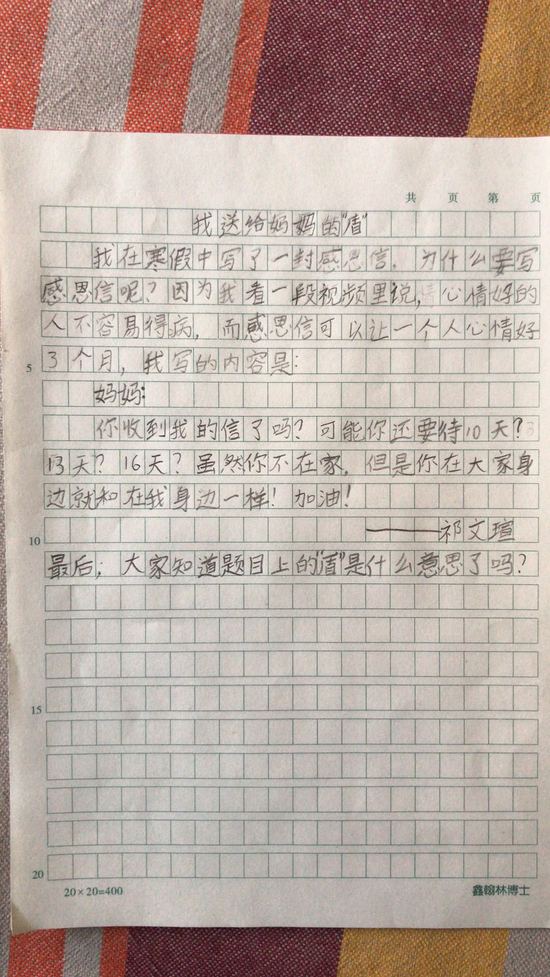 共 页 第 页
我送给妈妈的"盾"
我在寒假中写了一封感恩信.为什么要写
感恩信呢?因为我看一段视频里说,心情好的
人不容易得病,而感恩信可以让一个人心情好
5 3个月,我写的内容是:
妈妈:
你收到我的信了吗?可能你还要待10天?
13天?16天?虽然你不在家,但是你在大家身
边就和在我身边一样!加油!
10 ——祁文瑄
最后;大家知道题目上的"盾"是什么意思了吗?
15
20
20×20=400 鑫翰林博士